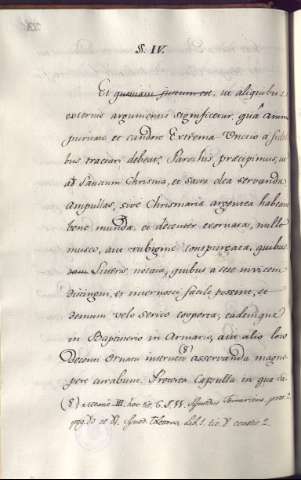 §. IV.
Et quoniam aliquibus
externis argumentis significetur, quâ Animi
puritate, et candore Extrema Unctio a
bus tractari debeat; Parochis præcipimus, ut
ad Sanctum Chrisma, et sacra olea servanda
ampullas, sive Chrismaria argentea habeant
bene munda, et decenter exornata, nullo
musco, aut rubigine conspurcata, quibus
literis notata, quibus a se invicem
distingui, et internosci facile possint, et
demum velo serico cooperta, eademque
in Baptisterio in Armario, aut alio loco
Decenti Ornatu asservanda magno-
pere curabunt. Capsulla in qua
(§)
tit. 6. § Synodus
Synod. Toletana lib. 1. tit.